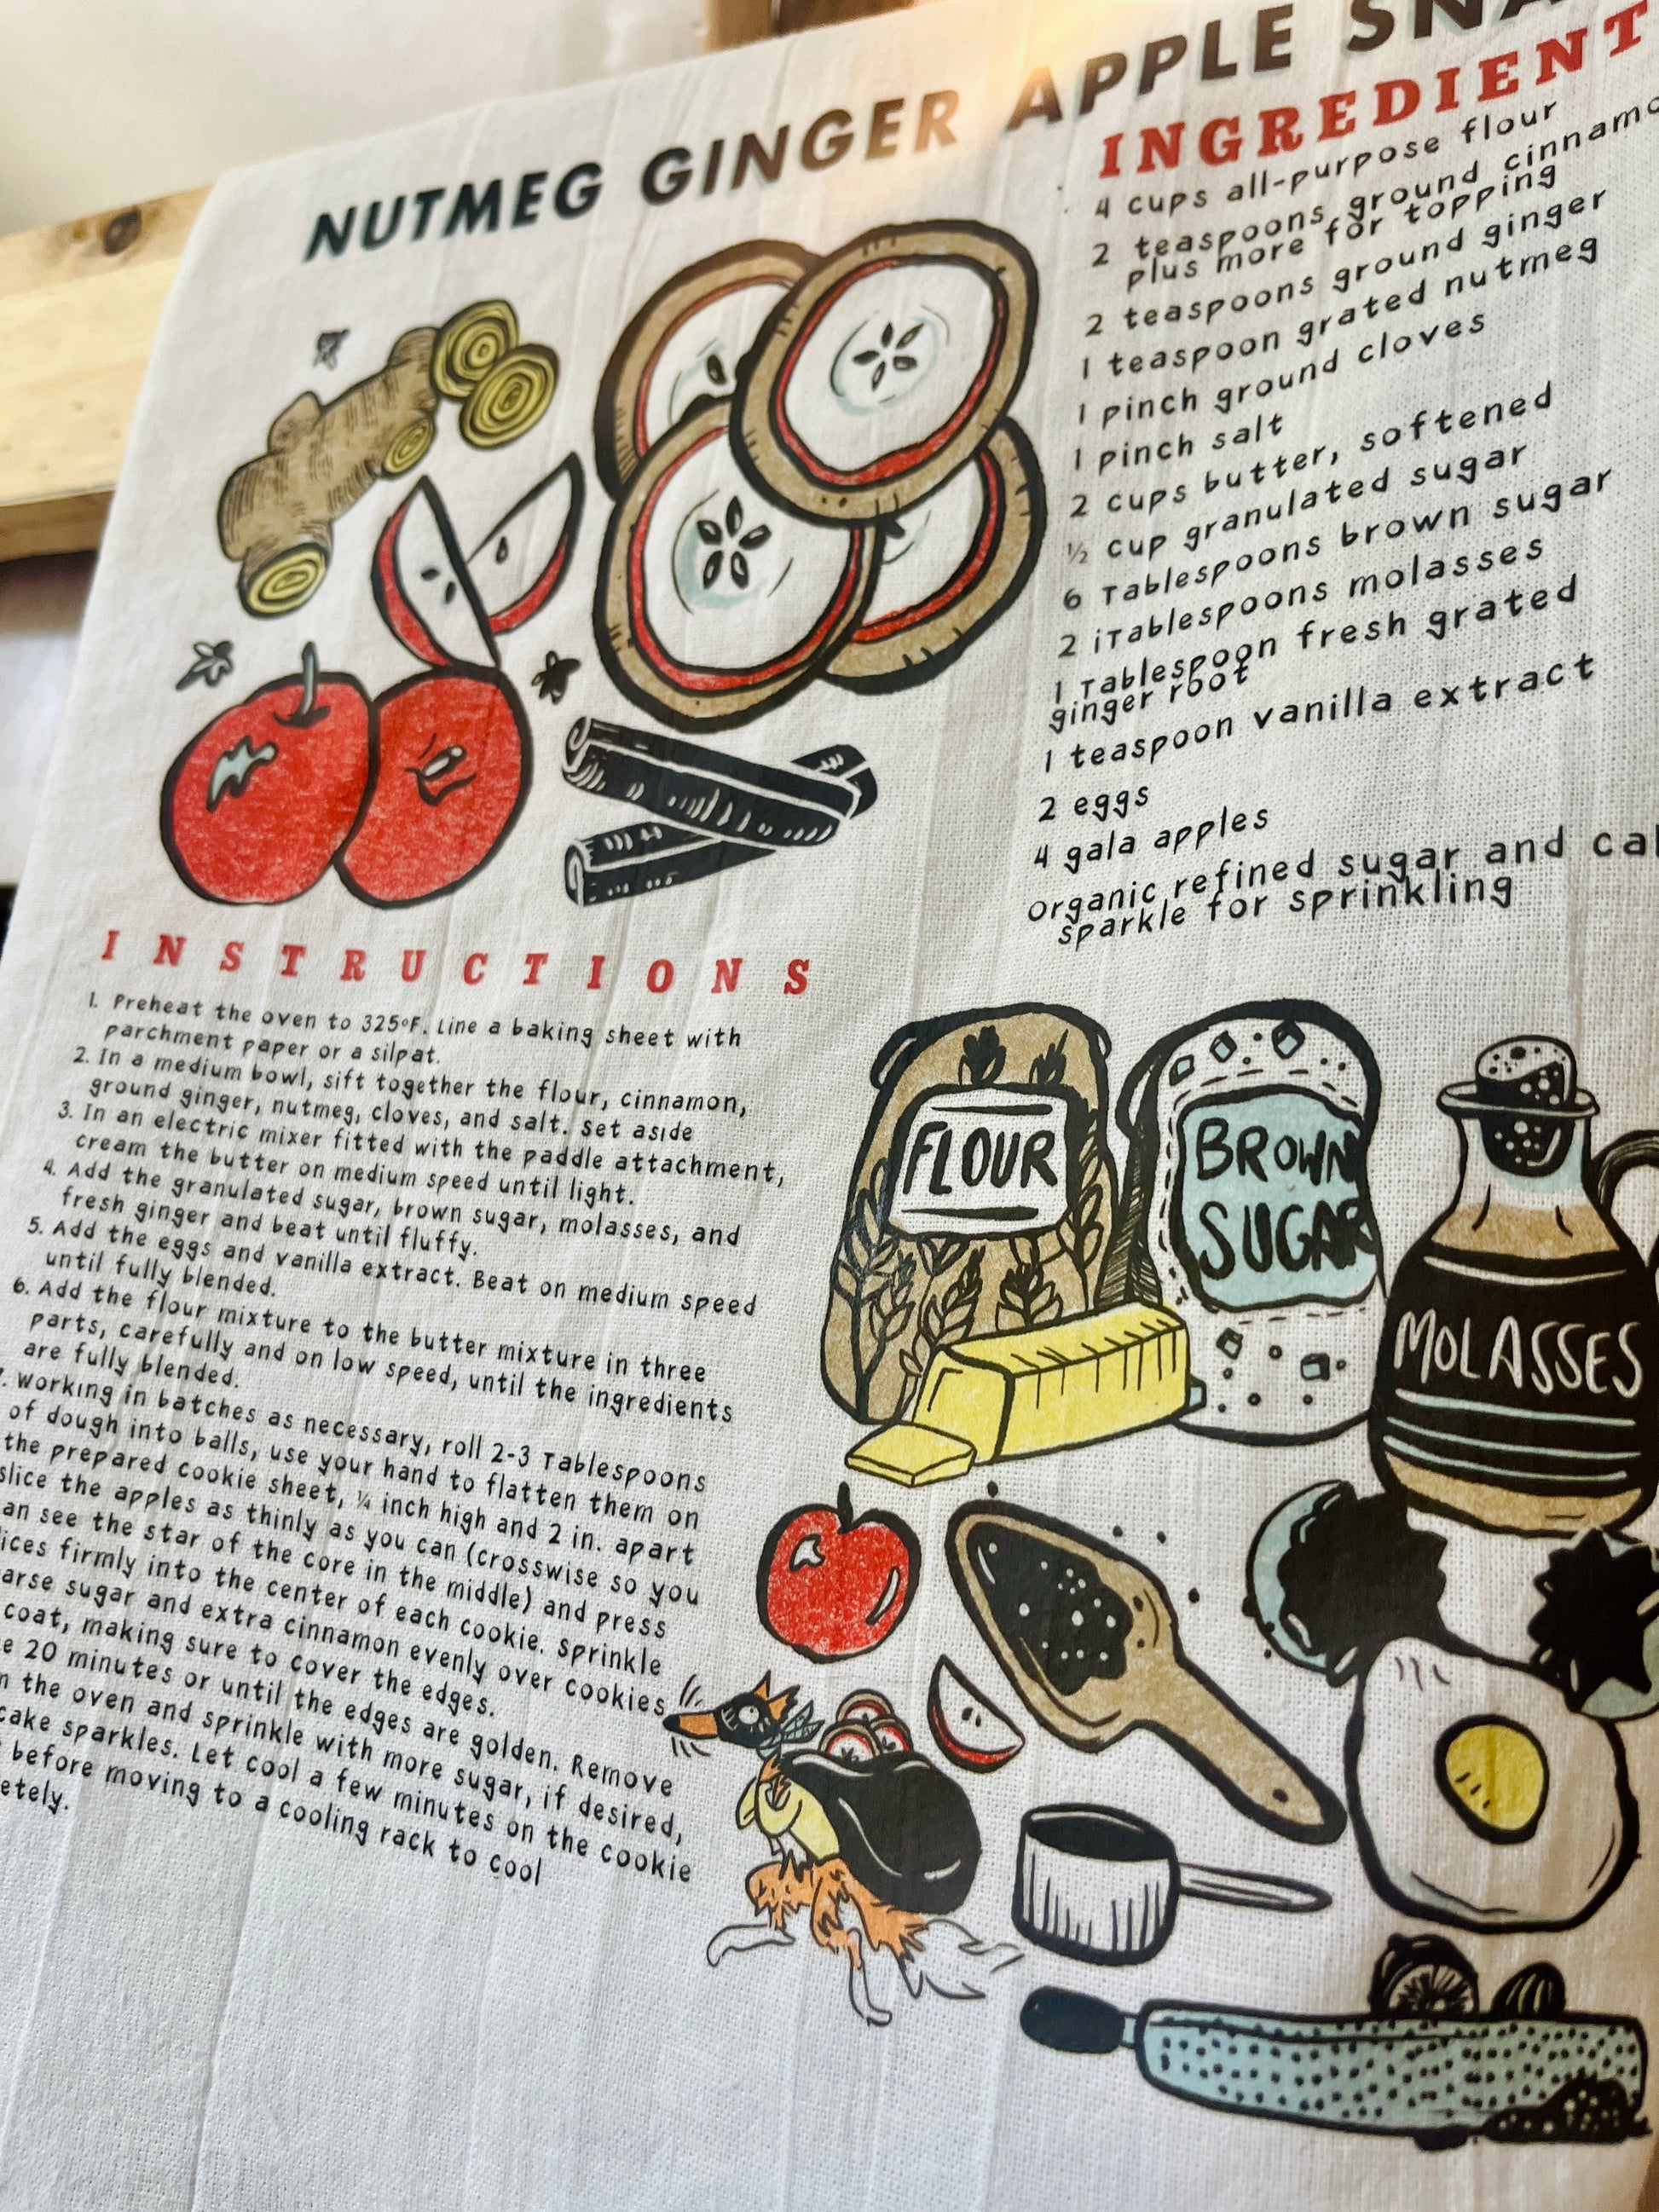 NUTMEG GINGER APPLE SNA
INGREDIENT
4 cups all-purpose flour
2 teaspoons ground cinnamo
plus more for topping
2 teaspoons ground ginger
1 teaspoon grated nutmeg
1 pinch ground cloves
1 pinch salt
2 cups butter, softened
½ cup granulated sugar
6 Tablespoons brown sugar
2 iTablespoons molasses
1 Tablespoon fresh grated
ginger root
1 teaspoon vanilla extract
2 eggs
4 gala apples
organic refined sugar and cal
sparkle for sprinkling
INSTRUCTIONS
1. Preheat the oven to 325°F. Line a baking sheet with
parchment paper or a silpat.
2. In a medium bowl, sift together the flour, cinnamon,
ground ginger, nutmeg, cloves, and salt. Set aside
3. In an electric mixer fitted with the paddle attachment,
cream the butter on medium speed until light.
4. Add the granulated sugar, brown sugar, molasses, and
fresh ginger and beat until fluffy.
5. Add the eggs and vanilla extract. Beat on medium speed
until fully blended.
6. Add the flour mixture to the butter mixture in three
parts, carefully and on low speed, until the ingredients
are fully blended.
. Working in batches as necessary, roll 2-3 Tablespoons
of dough into balls, use your hand to flatten them on
the prepared cookie sheet, ¼ inch high and 2 in. apart
slice the apples as thinly as you can (crosswise so you
an see the star of the core in the middle) and press
ices firmly into the center of each cookie. Sprinkle
arse sugar and extra cinnamon evenly over cookies
coat, making sure to cover the edges.
e 20 minutes or until the edges are golden. Remove
n the oven and sprinkle with more sugar, if desired,
cake sparkles. Let cool a few minutes on the cookie
before moving to a cooling rack to cool
etely.
FLOUR
BROWN
SUGAR
MOLASSES